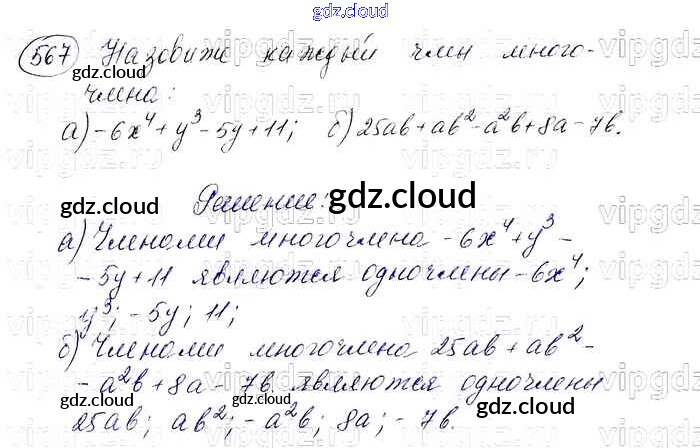 gdz.cloud
567 Назовите каждый член много-
члена:
а) -6x⁴ + y³ - 5y + 11; б) 25ab + ab² - a²b + 8a - 7b.
Решение:
а) Членами многочлена -6x⁴ + y³ -
- 5y + 11 являются одночлены -6x⁴;
y³; -5y; 11;
б) Членами многочлена 25ab + ab² -
- a²b + 8a - 7b являются одночлены
25ab; ab²; -a²b; 8a; -7b.
gdz.cloud
gdz.cloud
gdz.cloud
gdz.cloud
gdz.cloud
gdz.cloud